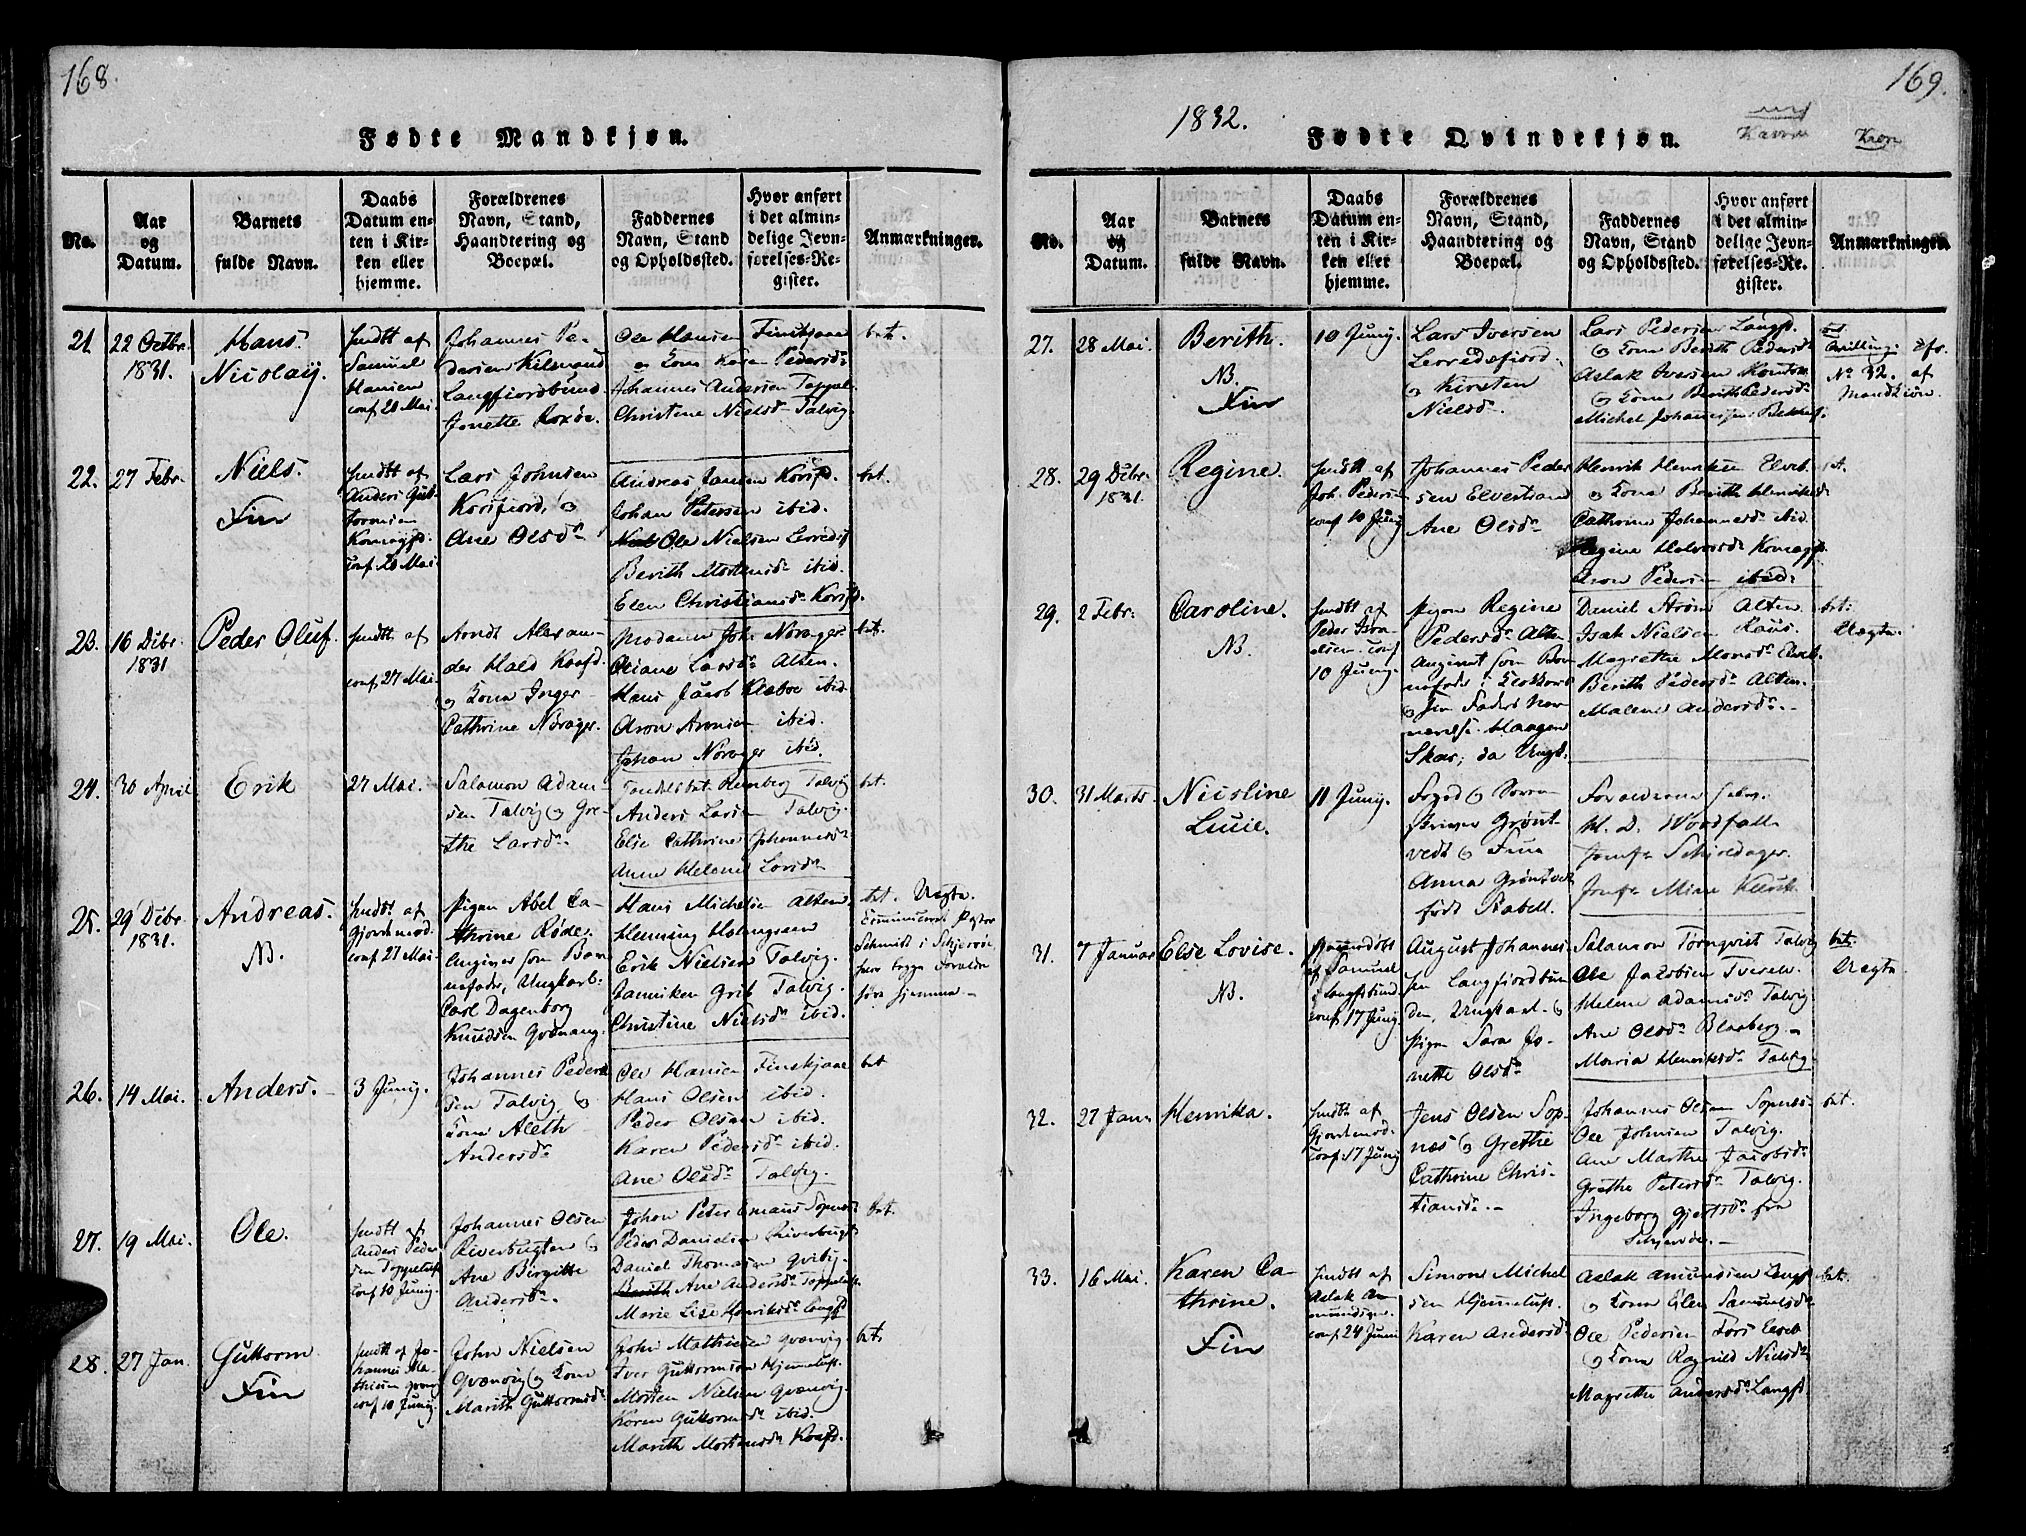 168.
Fødte Mandkjøn.
No.
Aar
og
Datum.
Barnets
fulde Navn.
Daabs
Datum en-
ten i Kir-
ken eller
hjemme.
Forældrenes
Navn, Stand,
Haandtering og
Boepæl.
Faddernes
Navn, Stand
og Opholdssted.
Hvor anført
i det almin-
delige Jevn-
førelses-Re-
gister.
Anmærkninger.
21.
22 Octbr.
1831.
Hans
Nicolaij.
hmdtt af
Samuel
Hansen
conf. 20 Mai.
Johannes Pe-
dersen
Langfjordbund
Jonette
Ole Hansen Finskjaae
og Kona Karen Pedersd.
Johannes Andersen Toppel.
Christine Nielsd. Talvig.
bet.
22.
27 Febr.
Niels.
Fin
hmdtt af
Anders Gut-
tormsen
Komagfd.
conf. 20 Mai.
Lars Johnsen
Korsfiord, og
Ane Olsdr
Andreas Jansen Korsfd.
Johan Petersen ibid.
Ole Nielsen Lerredsf
Berith Mortensdr ibid.
Elen Christiansdr Korsfd.
bet.
23.
16 Dcbr.
1831.
Peder Oluf.
hmdtt af
conf. 27 Mai.
Arndt Alexan-
der Hald Kaafd.
og Kona Inger
Cathrine Norager.
Madam Joh. Norager
Oliane Larsdr Alten.
Hans Jacob Klæboe ibid.
Aron Aronsen ibid.
Johan Norager ibid.
bet.
24.
30 April
Erik
27 Mai.
Salamon Adam-
sen Talvig og Gre-
the Larsdr.
Remberg Talvig
Anders Larsen Talvig.
Else Cathrine Johannesdr
Anne Helene Larsdr
bet.
25.
29 Dcbr.
1831.
Andreas.
NB.
hmdtt af
Gjordemod.
conf. 27 Mai.
Pigen Abel Ca-
thrine Røde.
Angiver som Bar-
nefader, Ungkarl
Carl Dagenborg
Knudsen Qvænang.
Hans Michelsen Alten
Henning Holmgreen
Erik Nielsen Talvig.
Janniken Grib Talvig.
Christine Nielsdr ibid.
bet. Uægte.
Schmidt i Skjervøe,
hvor begge Foræld.
høre hjemme.
26.
14 Mai.
Anders.
3 Junij.
Johannes Peder-
sen Talvig og
Kona Aleth
Andersdr
Ole Hansen Finskjaae
Hans Olsen ibid.
Peder Olsen ibid.
Karen Pedersdr ibid.
Ane Olsdr Talvig.
bet
27.
19 Mai.
Ole.
hmdtt af
Anders Peder-
sen Toppeluft
conf 10 Junij.
Johannes Olsen
Riverbugten og
Ane Birgitte
Andersdr.
Johan Peder Emaus Sopnes
Peder Danielsen Riverbugt
Daniel Thomasen
Ane Andersdr Toppeluft
Marie Lise Henriksdr Langfd
bet.
28.
27 Jan.
Guttorm
Fin
hmdtt af Jo-
hannes Ma-
thisen
conf 10 Junij.
John Nielsen
Qvænvig og Kona
Marith Guttormsdr
John Mathiesen Qvænvig
Iver Guttormsen Hjemeluft.
Morten Nielsen Qvænvig.
Karen Guttormsdr ibid.
Marith Mortensdr Kaafd.
bet.
169.
1832.
Fødte Qvindekjøn.
No.
Aar
og
Datum.
Barnets
fulde Navn.
Daabs
Datum en-
ten i Kir-
ken eller
hjemme.
Forældrenes
Navn, Stand,
Haandtering og
Boepæl.
Faddernes
Navn, Stand
og Opholdssted.
Hvor anført
i det almin-
delige Jevn-
førelses-Re-
gister.
Anmærkninger.
27.
28 Mai.
Berith.
NB.
Fin
10 Junij.
Lars Iversen
Lerredsfiord.
og Kirsten
Nielsdr.
Lars Pedersen Langfd.
og Kona Berith Pedersdr
Aslak Iversen
og Kona Berith Pedersdr
Michel Johannesen
Tvilling; cfr.
No 32. af
Mandkiøn.
28.
29 Dcbr.
1831.
Regine.
hmdtt af
Joh. Peders-
conf 10 Junij
Johannes Peder
sen Elvestrand
Ane Olsdr
Henrik Henriksen Elveb.
og Kona Berith Henriksd.
Cathrine Johannesdr ibid.
Regine Halvorsdr Komagf.
Aron Pedersen ibid.
bet.
29.
2 Febr.
Caroline.
NB.
hmdtt af
Peder Isra-
elsen. conf
10 Junij.
Pigen Regine
Pedersdr Alten
Angivet som Bar-
nefader:
Skar, da Ungk.
Daniel Strøm Alten
Isak Nielsen
Magrethe Monsdr Elveb.
Berith Pedersdr Alten.
Malene Andersdr.
bet:
Uægte.
30.
31 Marts.
Nicoline
Lucie.
11 Junij.
Foged og Soren-
skriver Grønt-
vedt og Frue
Anna Grøntvedt
født Stabell.
Forældrene selv.
H. D. Woodfall
Jomfr. Schiredager.
Jomfr. Mine Klerck
31.
7 Januar
Else Lovise.
NB.
af Samuel
i Langfbund.
conf. 17 Junij
August Johannes-
sen Langfiordbun
den, Ungkarl og
Pigen Sara Jo-
nette Olsdr.
Salamon Tørnqvist Talvig
Ole Jacobsen Tverelv.
Helene Adamsdr Talvig.
Ane Olsdr Blaaberg.
Maria Henriksdr Talvig.
bet.
Uægte.
32.
27 Jan.
Henrika.
hmdtt af
Gjordemod.
conf. 17 Junij
Jens Olsen Sop-
nes og Grethe
Cathrine Chris-
tiansdr.
Johannes Olsen Sopnes.
Ole Johnsen Talvig.
Ane Marthe Jacobsdr
Grethe Petersdr Talvig.
Ingeborg Gjertsdr fra
Schjervøe.
bet.
33.
16 Mai.
Karen Ca-
thrine.
Fin
hmdtt af
Aslak A-
mundsen
conf. 24 Junii
Simon Michel
sen Hjemeluft.
Karen Andersdr
Aslak Amundsen Langf
og Kona Elen Samuelsdr
Ole Pedersen Elveb
og Kona Ragnild Nielsdr
Magrethe Andersdr Langfd.
bet.